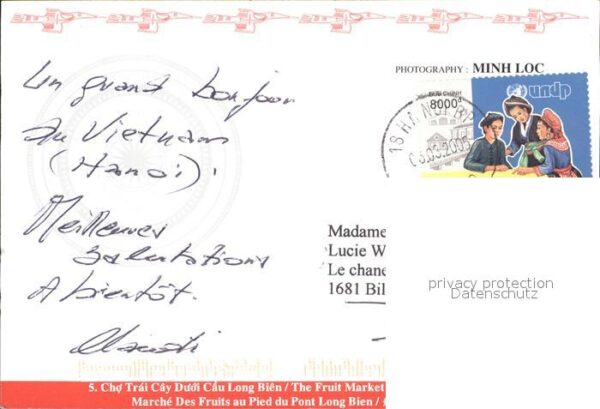 PHOTOGRAPHY : MINH LOC
BƯU CHÍNH
8000đ
undp
Un grand bonjour
du Vietnam
(Hanoi).
Meilleures
salutations
A bientôt.
Madame
Lucie W
Le chane
1681 Bil
privacy protection
Datenschutz
5. Chợ Trái Cây Dưới Cầu Long Biên / The Fruit Market
Marché Des Fruits au Pied du Pont Long Bien /